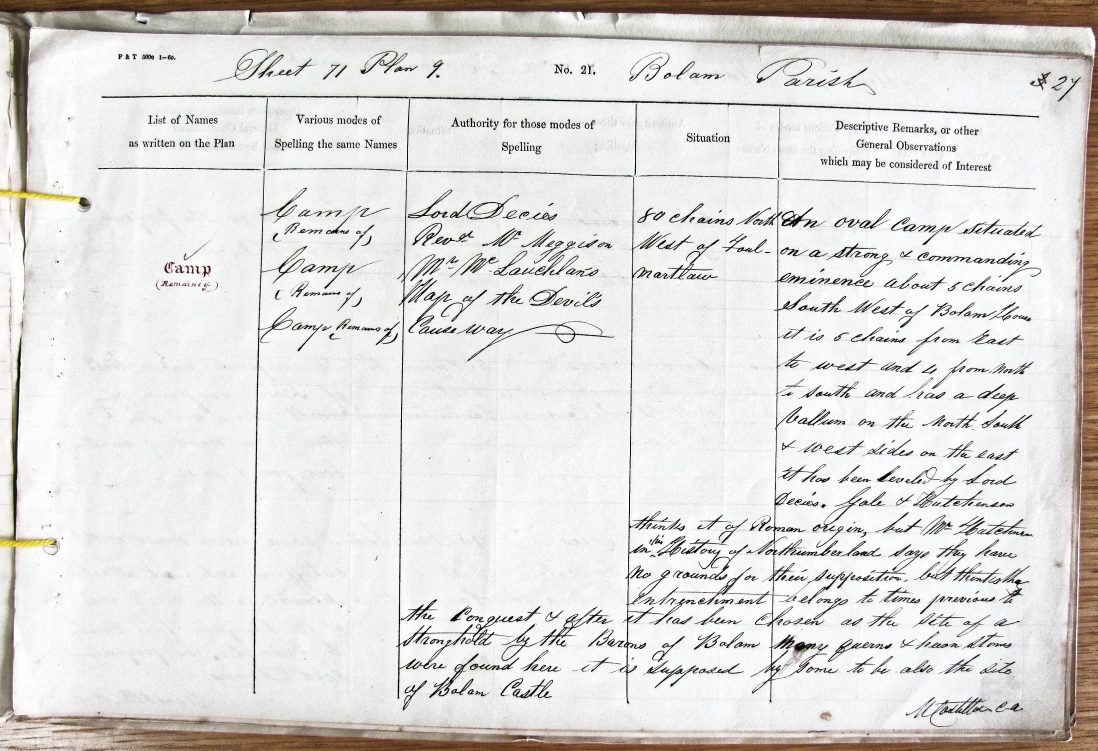 F & T 500g 1—60.
Sheet 71 Plan 9. No. 21. Bolam Parish 27
List of Names
as written on the Plan
Various modes of
Spelling the same Names
Authority for those modes of
Spelling
Situation
Descriptive Remarks, or other
General Observations
which may be considered of Interest
Camp
(Remains of)
Camp
(Remains of)
Camp
(Remains of)
Camp (Remains of)
Lord Decies
Revd. Mr. Meggison
Mr. Mc Lauchlans
Map of the Devils
Causeway
80 chains North
West of Foul-
martlaw
An oval Camp situated
on a strong & commanding
eminence about 5 chains
South West of Bolam House
it is 5 chains from East
to west and 4 from North
to south and has a deep
Vallum on the North. South
& west sides on the east
it has been leveled by Lord
Decies. Gale & Hutchenson
thinks it of Roman origin, but Mr.
in his History of Northumberland says they have
no grounds for their supposition. but thinks the
intrenchment belongs to times previous to
the Conquest & after it has been chosen as the site of a
stronghold by the Barons of Bolam many querns & hewn stones
were found here it is supposed by some to be also the site
of Bolam Castle